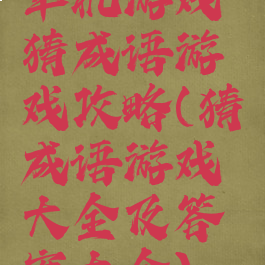 单机游戏
猜成语游
戏攻略(猜
成语游戏
大全及答
案大全)